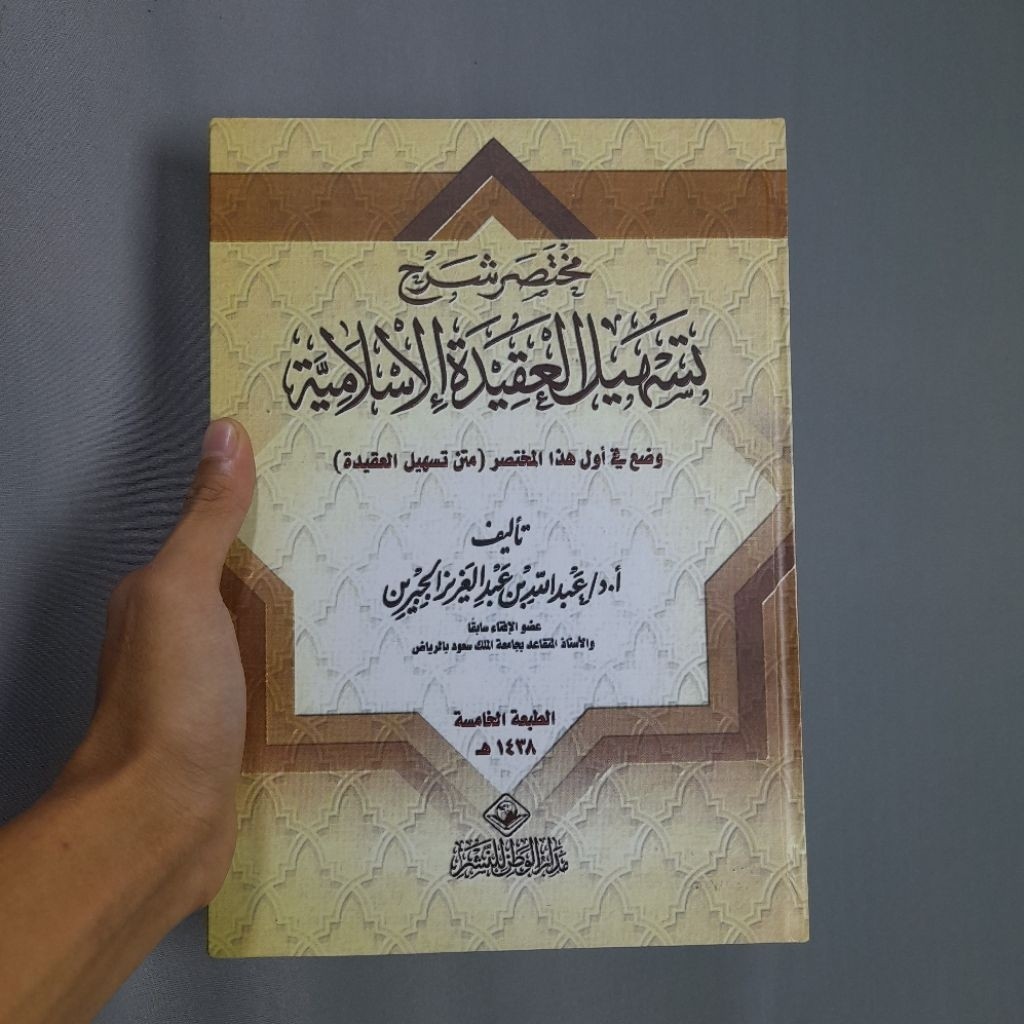 مختصر شرح
تسهيل العقيدة الإسلامية
وضع في أول هذا المختصر (متن تسهيل العقيدة)
تأليف
أ.د/عبد الله بن عبد العزيز الجبرين
عضو الإفتاء سابقا
والأستاذ المتقاعد بجامعة الملك سعود بالرياض
الطبعة الخامسة
١٤٣٨ هـ
مدار الوطن للنشر